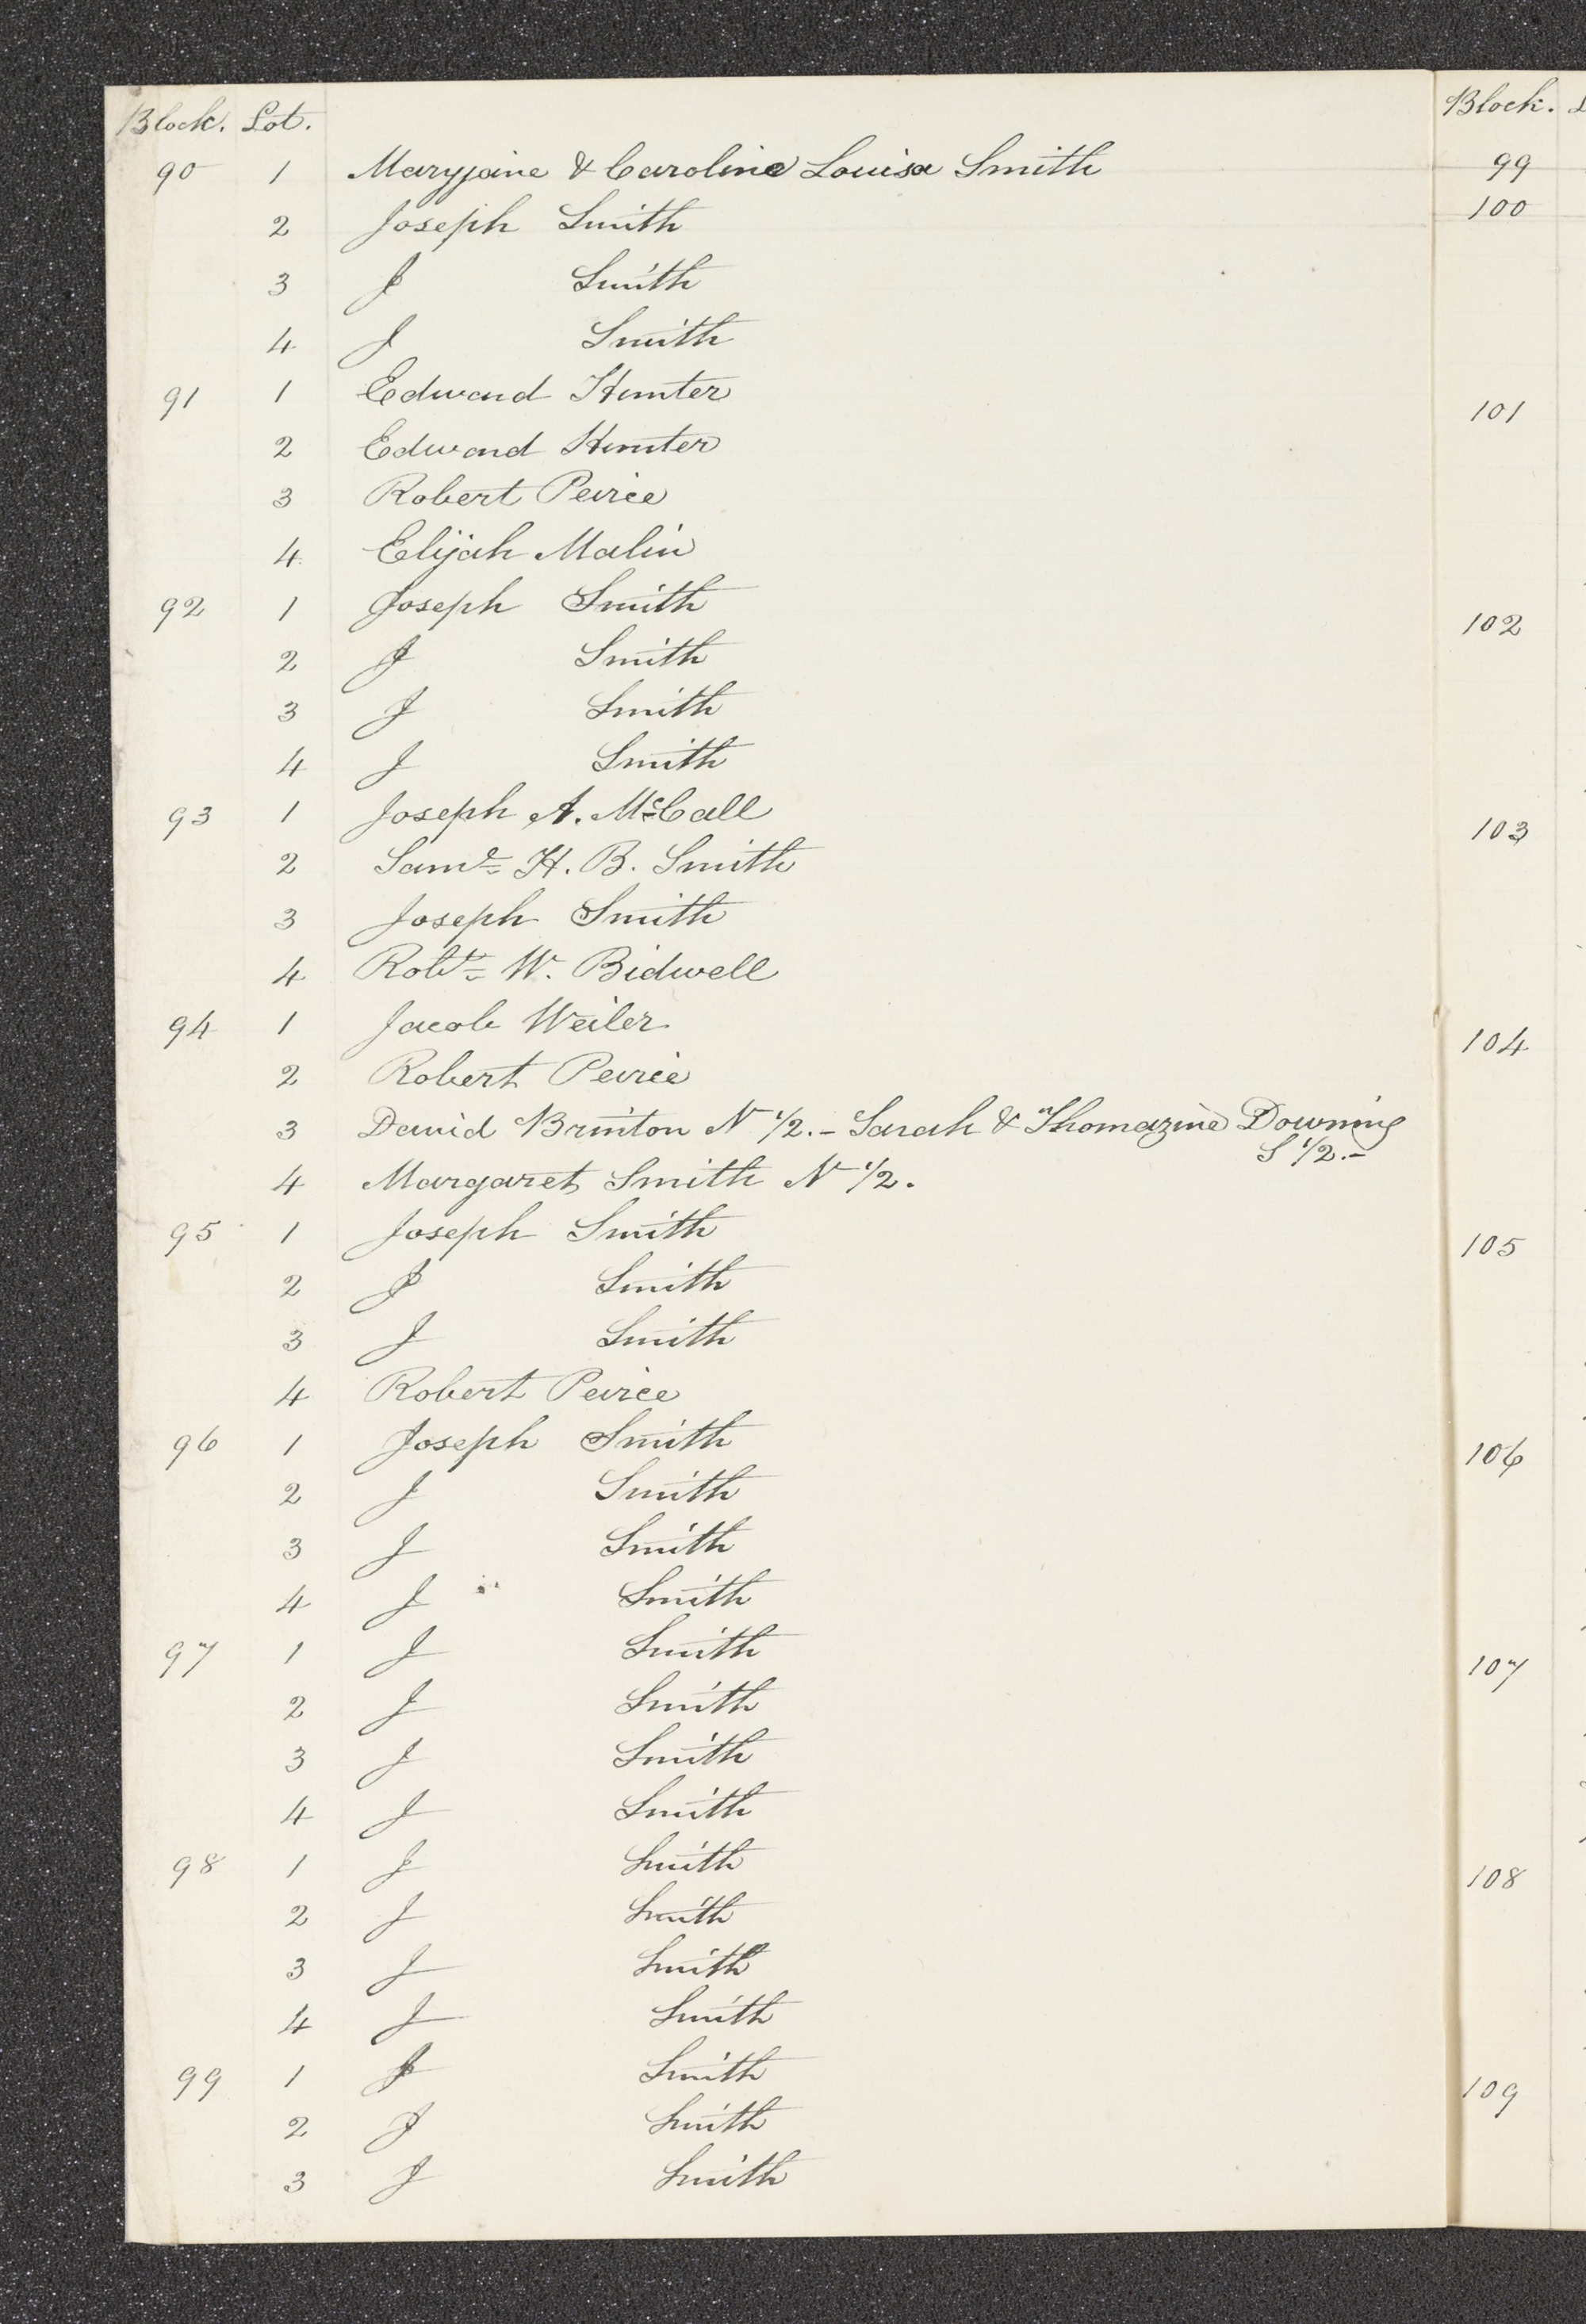 Block. Lot.
90 1 Maryjane & Caroline Louisa Smith
2 Joseph Smith
3 J Smith
4 J Smith
91 1 Edward Hunter
2 Edward Hunter
3 Robert Peirce
4 Elijah Malin
92 1 Joseph Smith
2 J Smith
3 J Smith
4 J Smith
93 1 Joseph A. McCall
2 Saml H. B. Smith
3 Joseph Smith
4 Robt W. Bidwell
94 1 Jacob Weiler
2 Robert Peirce
3 David Brinton N 1/2.- Sarah & Thomazine Downing
S 1/2.-
4 Margaret Smith N 1/2.
95 1 Joseph Smith
2 J Smith
3 J Smith
4 Robert Peirce
96 1 Joseph Smith
2 J Smith
3 J Smith
4 J Smith
97 1 J Smith
2 J Smith
3 J Smith
4 J Smith
98 1 J Smith
2 J Smith
3 J Smith
4 J Smith
99 1 J Smith
2 J Smith
3 J Smith
Block.
99
100
101
102
103
104
105
106
107
108
109